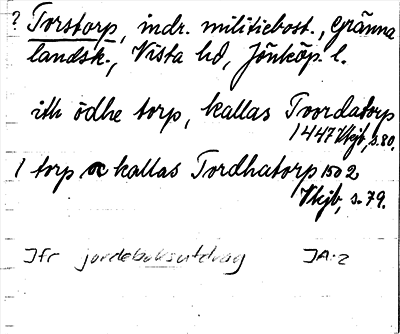 ? Torstorp, indr. militiebost., Gränna
landsk., Vista hd, Jönköp. l.
ith ödhe torp, kallas Toordatorp
1447 Vkjb, s. 80.
1 torp oc kallas Tordhatorp 1502
Vkjb, s. 79.
Jfr jordeboksutdrag JA:2